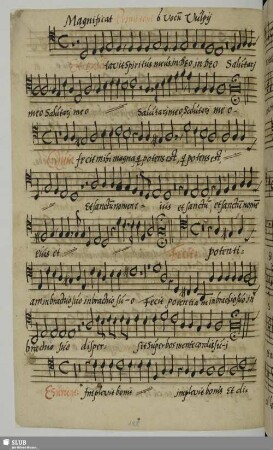 Magnificat 6 Vocũ Vulpij
tavit Spiritus meus in Deo in Deo Salutarj
meo Salutarj meo Salutarj meo Salutarj me o
fecit mihi magna q potens est, q potens est,
Et sanctũ nomen e ius et sanctũ et sanctũ nomẽ
eius et potenti
am in brachio suo in brachio su o Fecit potentiã in brachio suo in
brachio suo disper sit superbos mente cordis su i
Esurientes Implevit bonis implevit bonis Et di
SLUB